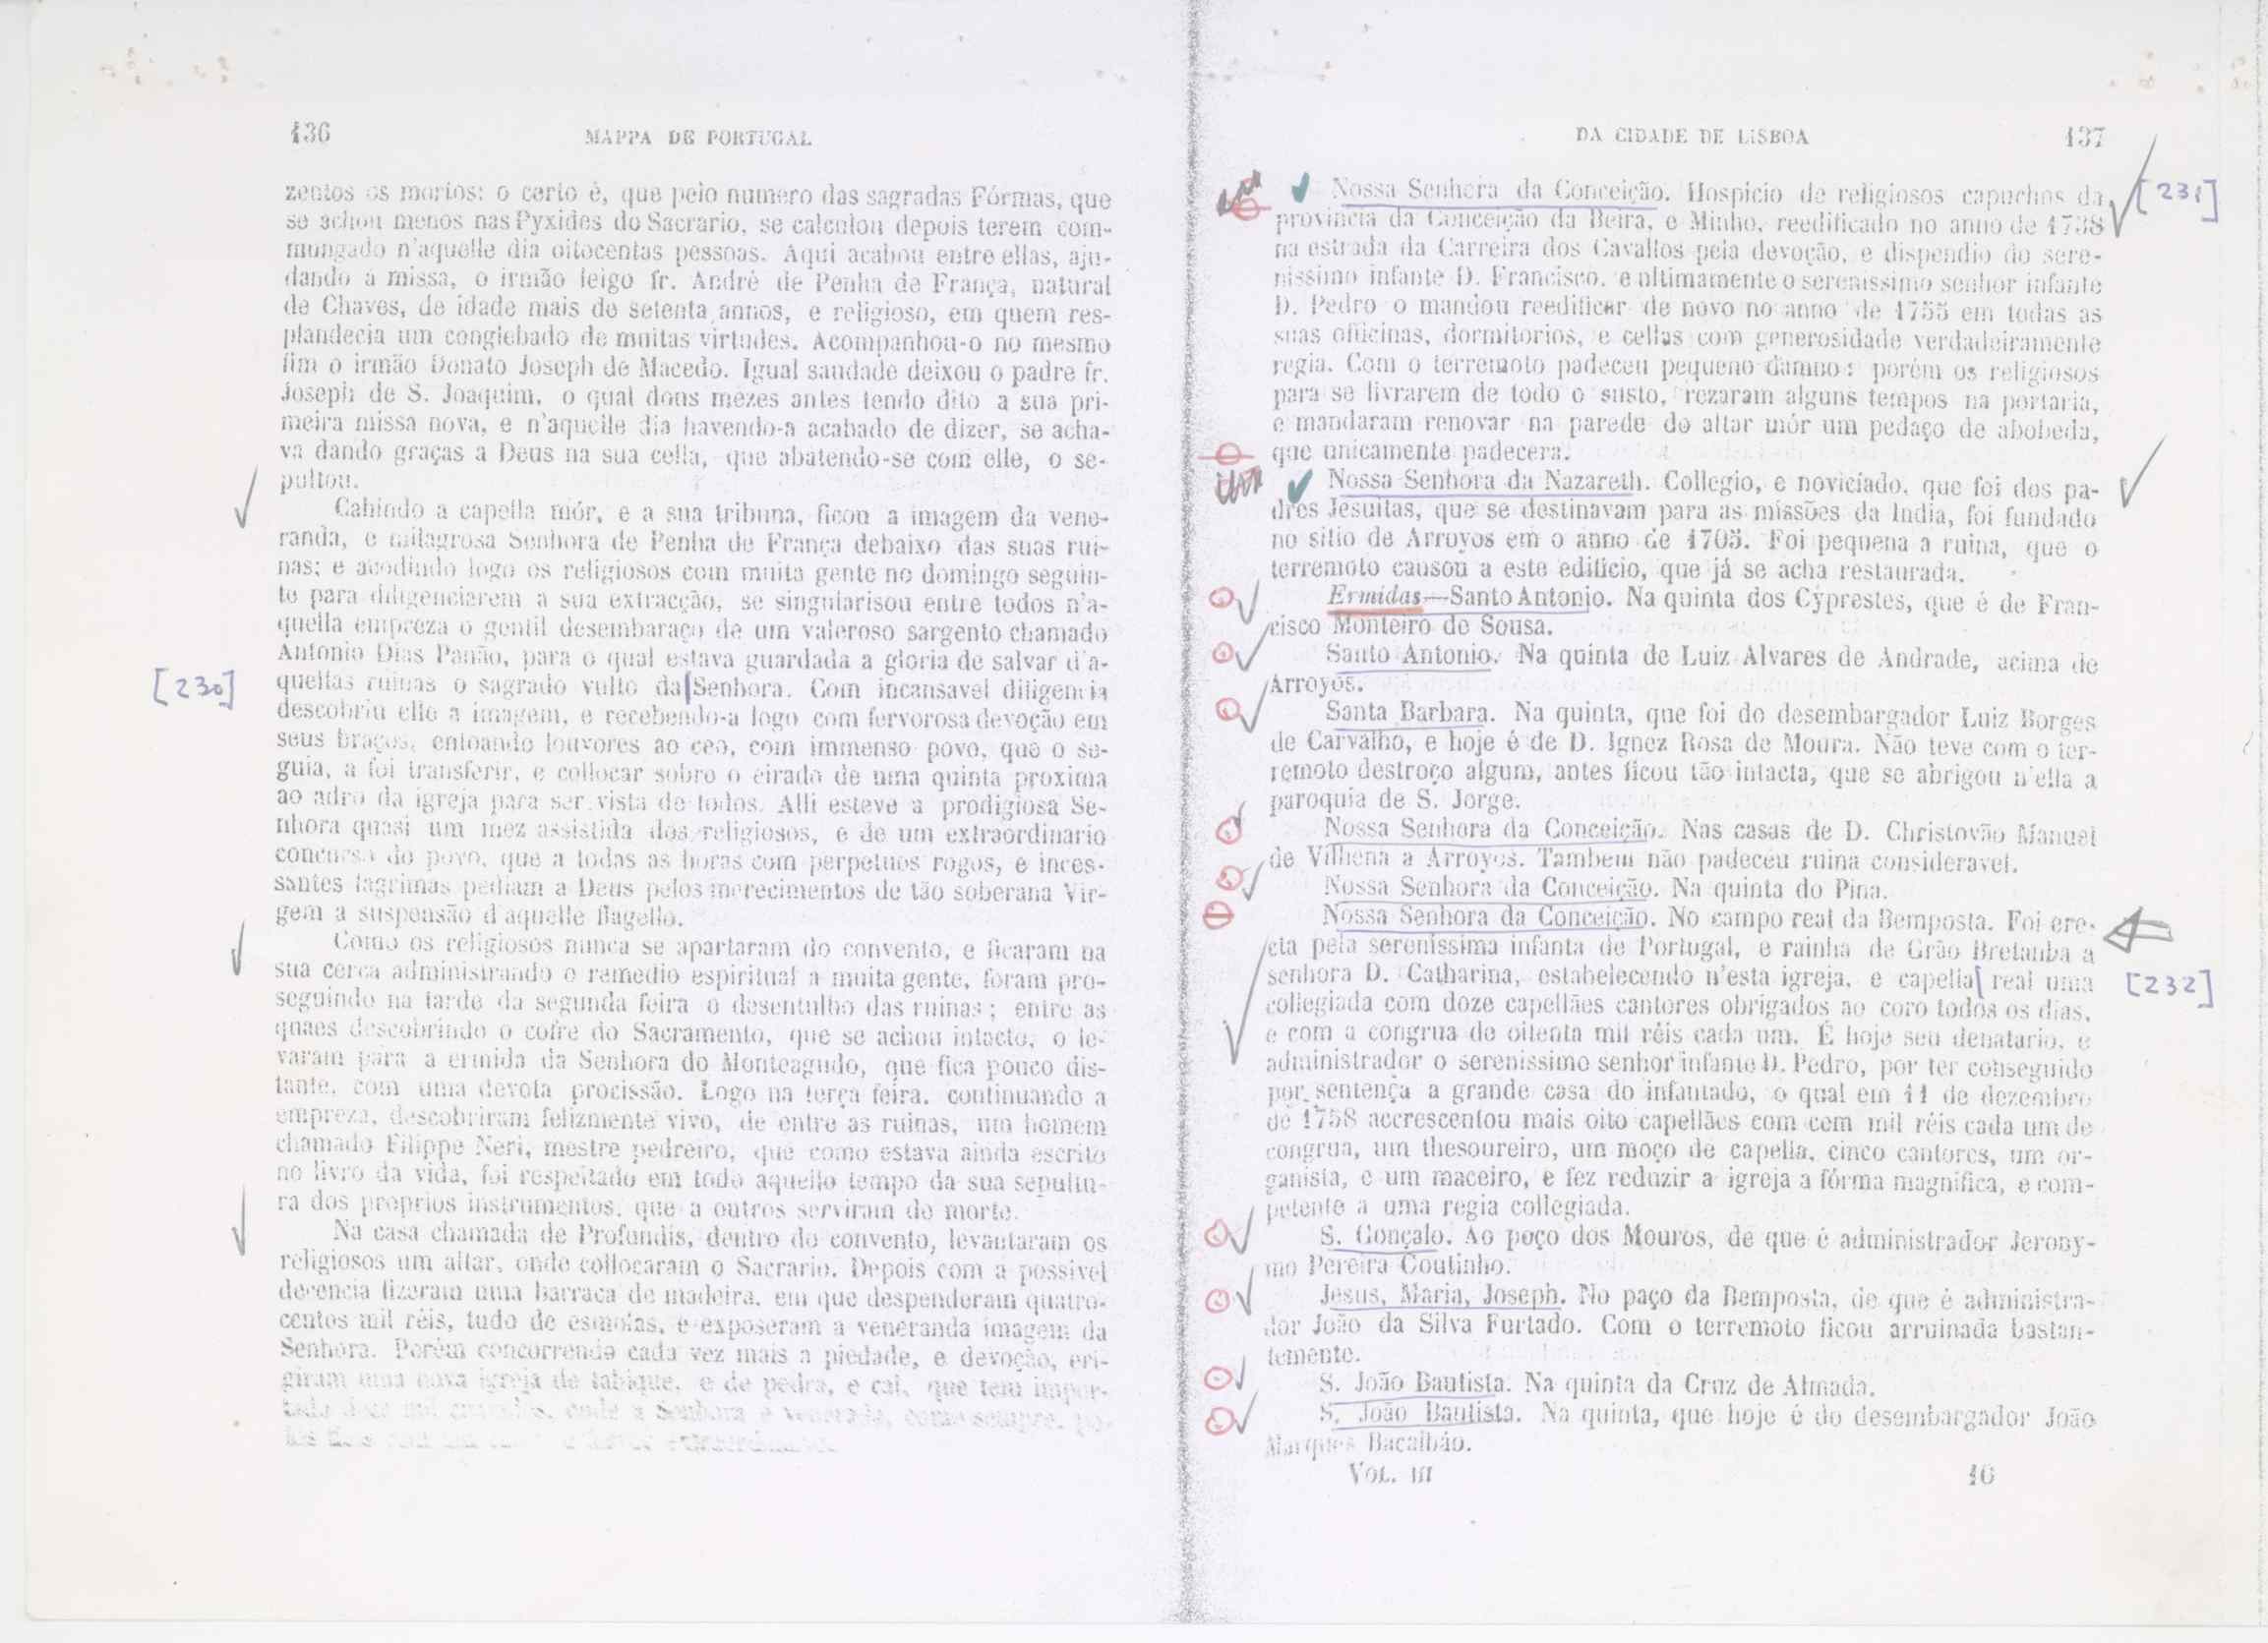 136
MAPPA DE PORTUGAL
zentos os mortos: o certo é, que pelo numero das sagradas Fórmas, que
se achou menos nas Pyxides do Sacrario, se calculou depois terem com-
mungado n'aquelle dia oitocentas pessoas. Aqui acabou entre ellas, aju-
dando á missa, o irmão leigo fr. André de Penha de França, natural
de Chaves, de idade mais de setenta annos, e religioso, em quem res-
plandecia um conglebado de muitas virtudes. Acompanhou-o no mesmo
fim o irmão Donato Joseph de Macedo. Igual saudade deixou o padre fr.
Joseph de S. Joaquim, o qual dous mezes antes tendo dito a sua pri-
meira missa nova, e n'aquelle dia havendo-a acabado de dizer, se acha-
va dando graças a Deus na sua cella, que abatendo-se com elle, o se-
pultou.
Cahindo a capella mór, e a sua tribuna, ficou a imagem da vene-
randa, e milagrosa Senhora de Penha de França debaixo das suas rui-
nas; e acodindo logo os religiosos com muita gente no domingo seguin-
te para diligenciarem a sua extracção, se singularisou entre todos n'a-
quella empreza o gentil desembaraço de um valeroso sargento chamado
Antonio Dias Panão, para o qual estava guardada a gloria de salvar d'a-
[230] quellas ruinas o sagrado vulto da[Senhora. Com incansavel diligencia
descobriu elle a imagem, e recebendo-a logo com fervorosa devoção em
seus braços, entoando louvores ao ceo, com immenso povo, que o se-
guia, a foi transferir, e collocar sobre o eirado de uma quinta proxima
ao adro da igreja para ser vista de todos. Alli esteve a prodigiosa Se-
nhora quasi um mez assistida dos religiosos, e de um extraordinario
concurso do povo, que a todas as horas com perpetuos rogos, e inces-
santes lagrimas pediam a Deus pelos merecimentos de tão soberana Vir-
gem a suspensão d'aquelle flagello.
Como os religiosos nunca se apartaram do convento, e ficaram na
sua cerca administrando o remedio espiritual a muita gente, foram pro-
seguindo na tarde da segunda feira o desentulho das ruinas; entre as
quaes descobrindo o cofre do Sacramento, que se achou intacto, o le-
varam para a ermida da Senhora do Monteagudo, que fica pouco dis-
tante, com uma devota procissão. Logo na terça feira, continuando a
empreza, descobriram felizmente vivo, de entre as ruinas, um homem
chamado Filippe Neri, mestre pedreiro, que como estava ainda escrito
no livro da vida, foi respeitado em todo aquelle tempo da sua sepultu-
ra dos proprios instrumentos, que a outros serviram de morte.
Na casa chamada de Profundis, dentro do convento, levantaram os
religiosos um altar, onde collocaram o Sacrario. Depois com a possivel
decencia fizeram uma barraca de madeira, em que despenderam quatro-
centos mil réis, tudo de esmolas, e expozeram a veneranda imagem da
Senhora. Porém concorrendo cada vez mais a piedade, e devoção, eri-
giram uma nova igreja de tabique, e de pedra, e cal, que tem impor-
tado doze mil cruzados, onde a Senhora é venerada, como sempre,
DA CIDADE DE LISBOA
137
Nossa Senhora da Conceição. Hospicio de religiosos capuchos da [231]
provincia da Conceição da Beira, e Minho, reedificado no anno de 1738
na estrada da Carreira dos Cavallos pela devoção, e dispendio do sere-
nissimo infante D. Francisco, e ultimamente o serenissimo senhor infante
D. Pedro o mandou reedificar de novo no anno de 1755 em todas as
suas officinas, dormitorios, e cellas com generosidade verdadeiramente
regia. Com o terremoto padeceu pequeno damno: porém os religiosos
para se livrarem de todo o susto, rezaram alguns tempos na portaria,
e mandaram renovar na parede do altar mór um pedaço de abobeda,
que unicamente padecera.
Nossa Senhora da Nazareth. Collegio, e noviciado, que foi dos pa-
dres Jesuitas, que se destinavam para as missões da India, foi fundado
no sitio de Arroyos em o anno de 1705. Foi pequena a ruina, que o
terremoto causou a este edificio, que já se acha restaurada.
Ermidas—Santo Antonio. Na quinta dos Cyprestes, que é de Fran-
cisco Monteiro de Sousa.
Santo Antonio. Na quinta de Luiz Alvares de Andrade, acima de
Arroyos.
Santa Barbara. Na quinta, que foi do desembargador Luiz Borges
de Carvalho, e hoje é de D. Ignez Rosa de Moura. Não teve com o ter-
remoto destroço algum, antes ficou tão intacta, que se abrigou n'ella a
paroquia de S. Jorge.
Nossa Senhora da Conceição. Nas casas de D. Christovão Manuel
de Vilhena a Arroyos. Tambem não padeceu ruina consideravel.
Nossa Senhora da Conceição. Na quinta do Pina.
Nossa Senhora da Conceição. No campo real da Bemposta. Foi ere-
cta pela serenissima infanta de Portugal, e rainha de Grão Bretanha a
senhora D. Catharina, estabelecendo n'esta igreja, e capella[ real uma [232]
collegiada com doze capellães cantores obrigados ao coro todos os dias,
e com a congrua de oitenta mil réis cada um. É hoje seu donatario, e
administrador o serenissimo senhor infante D. Pedro, por ter conseguido
por sentença a grande casa do infantado, o qual em 11 de dezembro
de 1758 accrescentou mais oito capellães com cem mil réis cada um de
congrua, um thesoureiro, um moço de capella, cinco cantores, um or-
ganista, e um maceiro, e fez reduzir a igreja a fórma magnifica, e com-
petente a uma regia collegiada.
S. Gonçalo. Ao poço dos Mouros, de que é administrador Jerony-
mo Pereira Coutinho.
Jesus, Maria, Joseph. No paço da Bemposta, de que é administra-
dor João da Silva Furtado. Com o terremoto ficou arruinada bastan-
temente.
S. João Bautista. Na quinta da Cruz de Almada.
S. João Bautista. Na quinta, que hoje é do desembargador João
Marques Bacalháo.
VOL. III
10